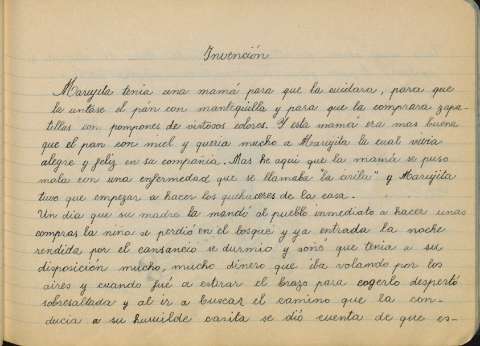 Invención
Marujita tenia una mamá para que la cuidara, para que
la untase el pán con mantequilla y para que la comprara zapa-
tillas con pompones de vistosos colores. Y esta mamá era mas buena
que el pan con miel y queria mucho a Marujita la cual vivia
alegre y feliz en su compañia. Mas he aqui que la mamá se puso
mala con una enfermedad que se llamaba "la" y Marujita
tuvo que empezar a hacer los quehaceres de la casa.
Un dia que su madre la mandó al pueblo inmediato a hacer unas
compras la niña se perdió en el bosque y ya entrada la noche
rendida por el cansancio se durmio y soñó que tenia a su
disposición mucho, mucho dinero que iba volando por los
aires y cuando fué a estirar el brazo para cogerlo despertó
sobresaltada y al ir a buscar el camino que la con-
ducia a su humilde casita se dió cuenta de que es-